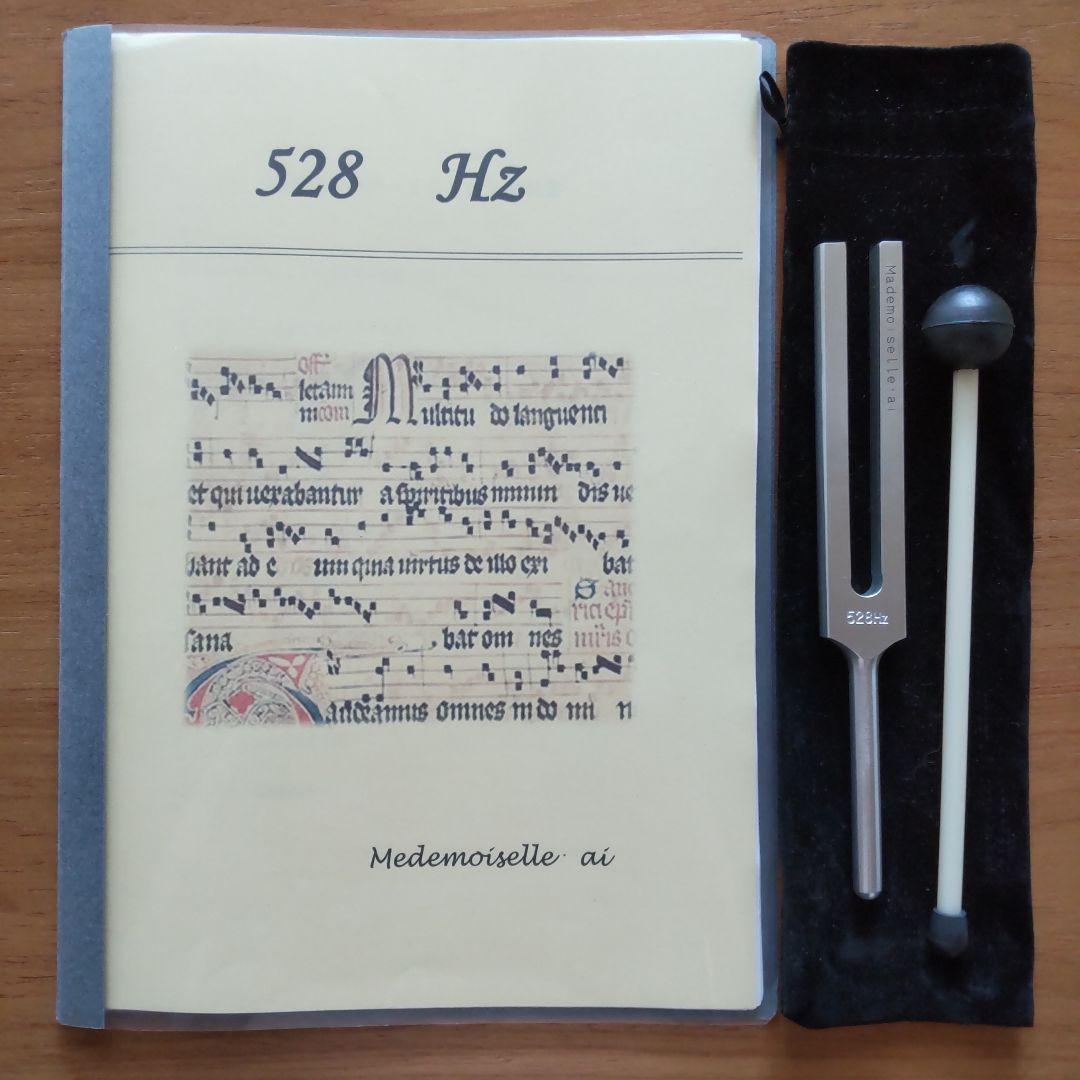 528 Hz
off
letann
nicom
Multitu do languenti
et qui uexabantur a spiritibus inmun dis ue
bant ad e um quia uirtus de illo exi bat
sana bat om nes
audeamus omnes in do mi n
Medemoiselle· ai
Mademoiselle·ai
528Hz